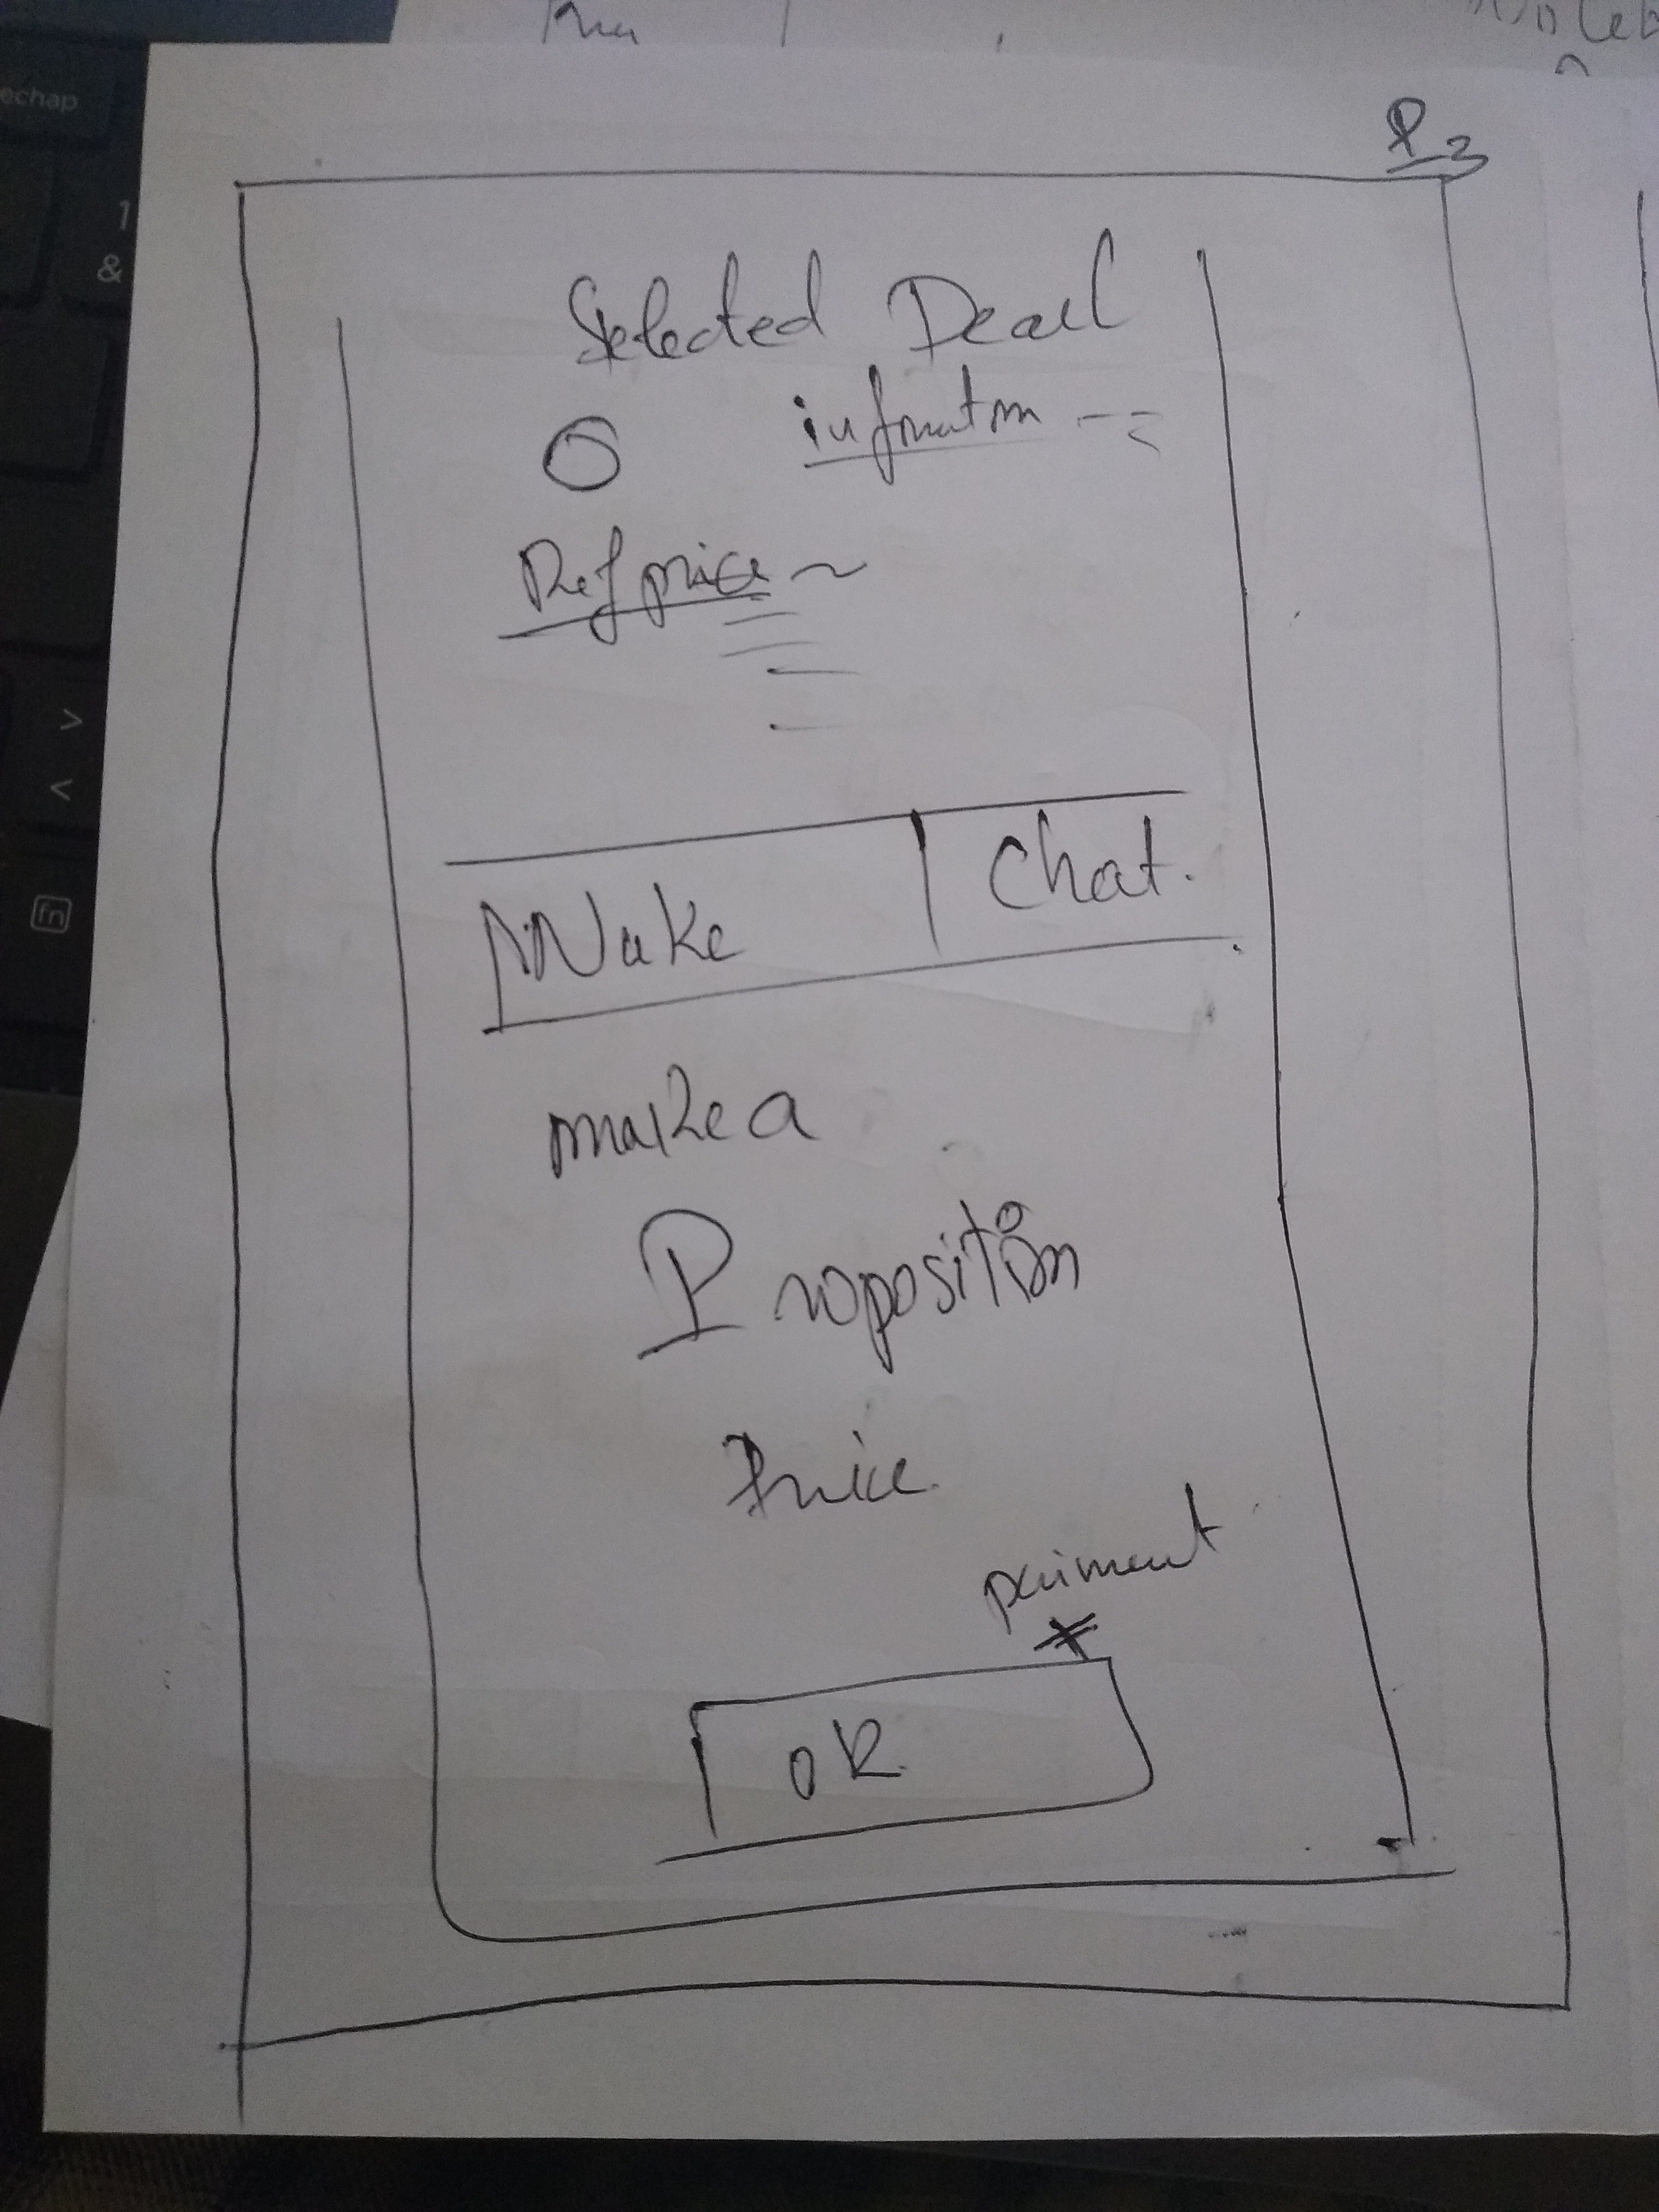 echap
1
&
>
<
fn
P3
Selected Deal
information
Ref price
Make
Chat.
make a
Proposition
Price
paiment
OK